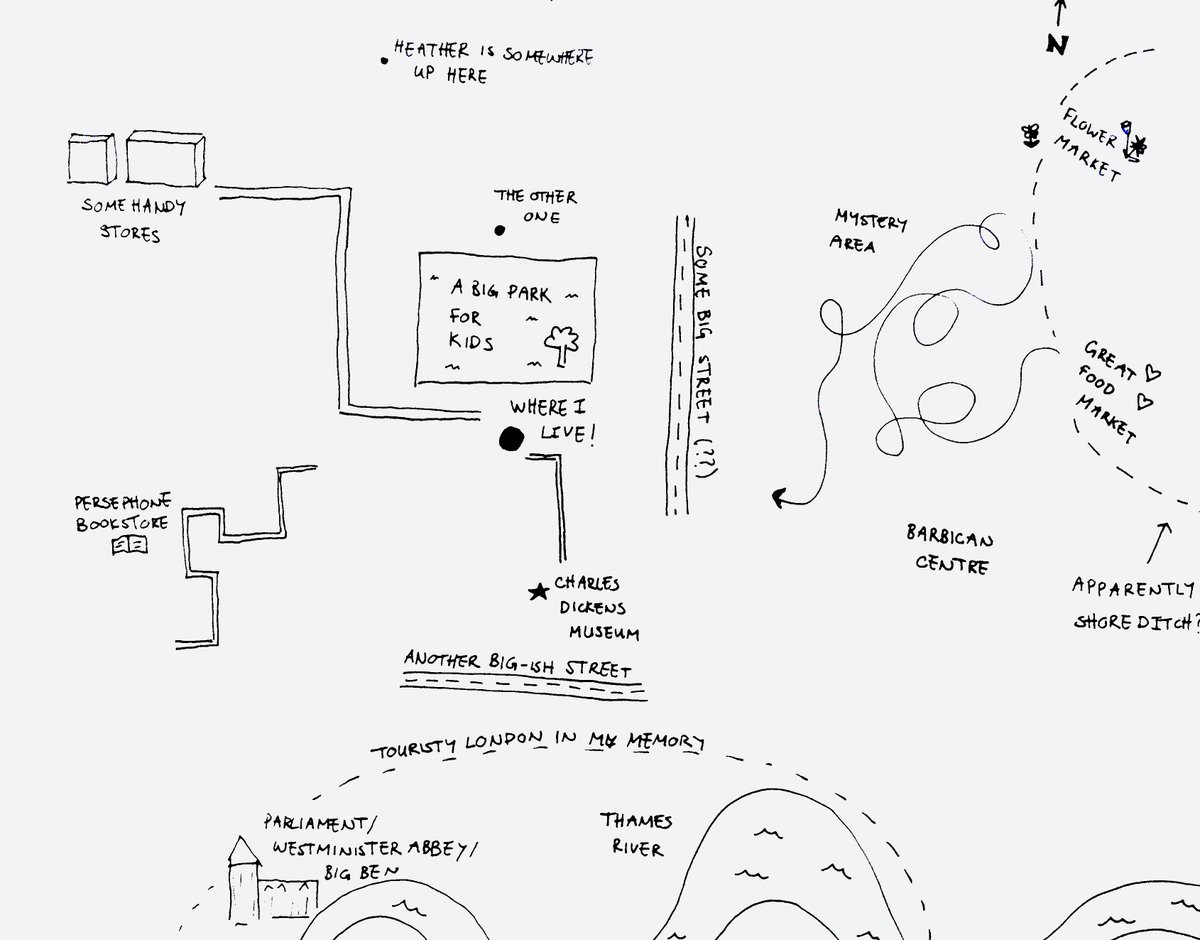 HEATHER IS SOMEWHERE
UP HERE
N
FLOWER
MARKET
SOME HANDY
STORES
THE OTHER
ONE
MYSTERY
AREA
A BIG PARK
FOR
KIDS
SOME BIG STREET (??)
GREAT
FOOD
MARKET
WHERE I
LIVE!
PERSEPHONE
BOOKSTORE
BARBICAN
CENTRE
CHARLES
DICKENS
MUSEUM
APPARENTLY
SHOREDITCH?
ANOTHER BIG-ISH STREET
TOURISTY LONDON IN MY MEMORY
PARLIAMENT/
WESTMINISTER ABBEY/
BIG BEN
THAMES
RIVER